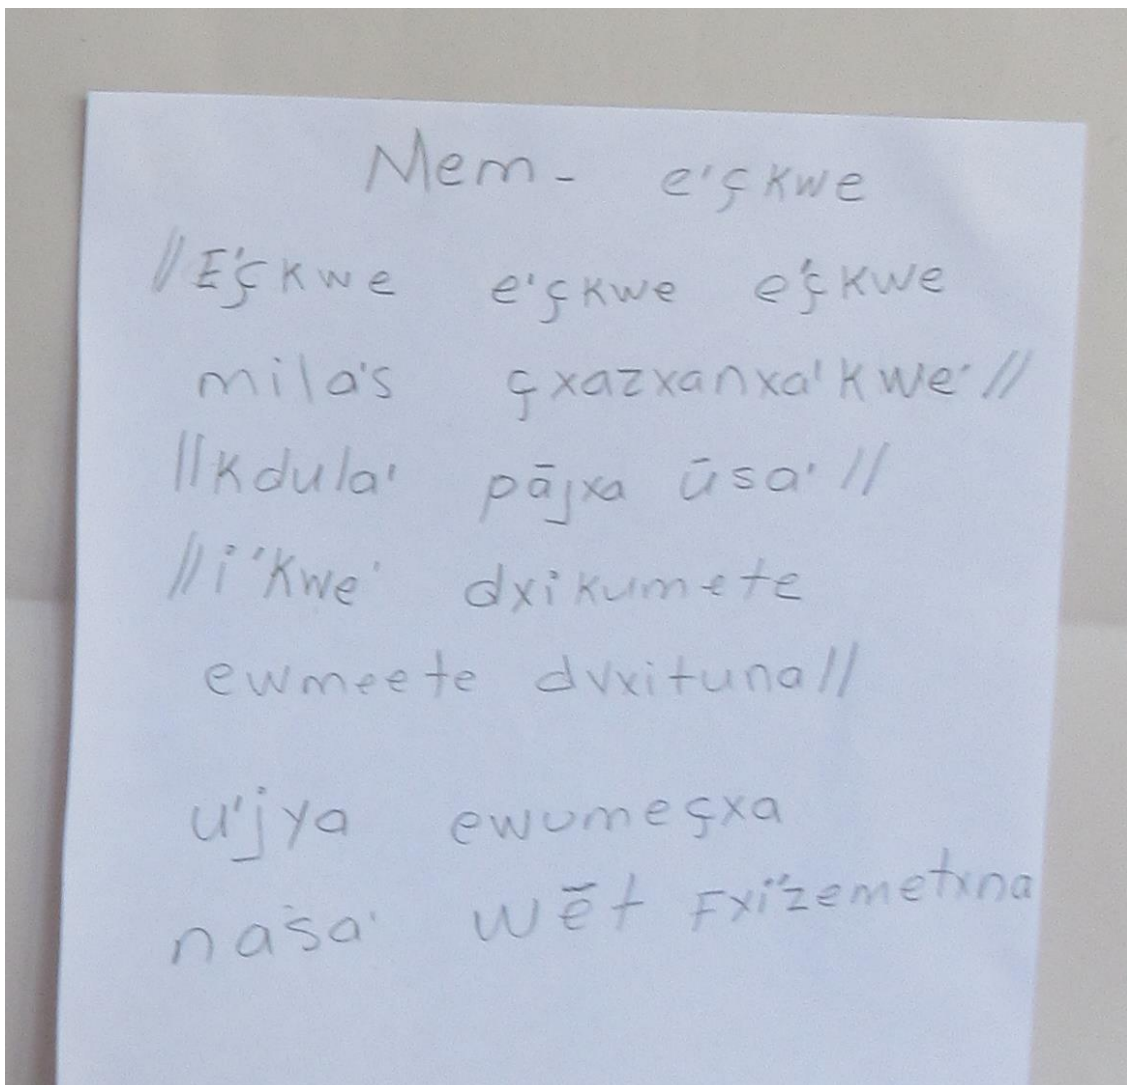 Mem - e'çkwe
//E'çkwe e'çkwe e'çkwe
mila's çxazxanxa'kwe'//
//kdula' pājxa ūsa'//
//i'kwe' dxikumete
ewmeete dvxituna//
u'jya ewumeçxa
naśa' wēt Fxi'zemetxna